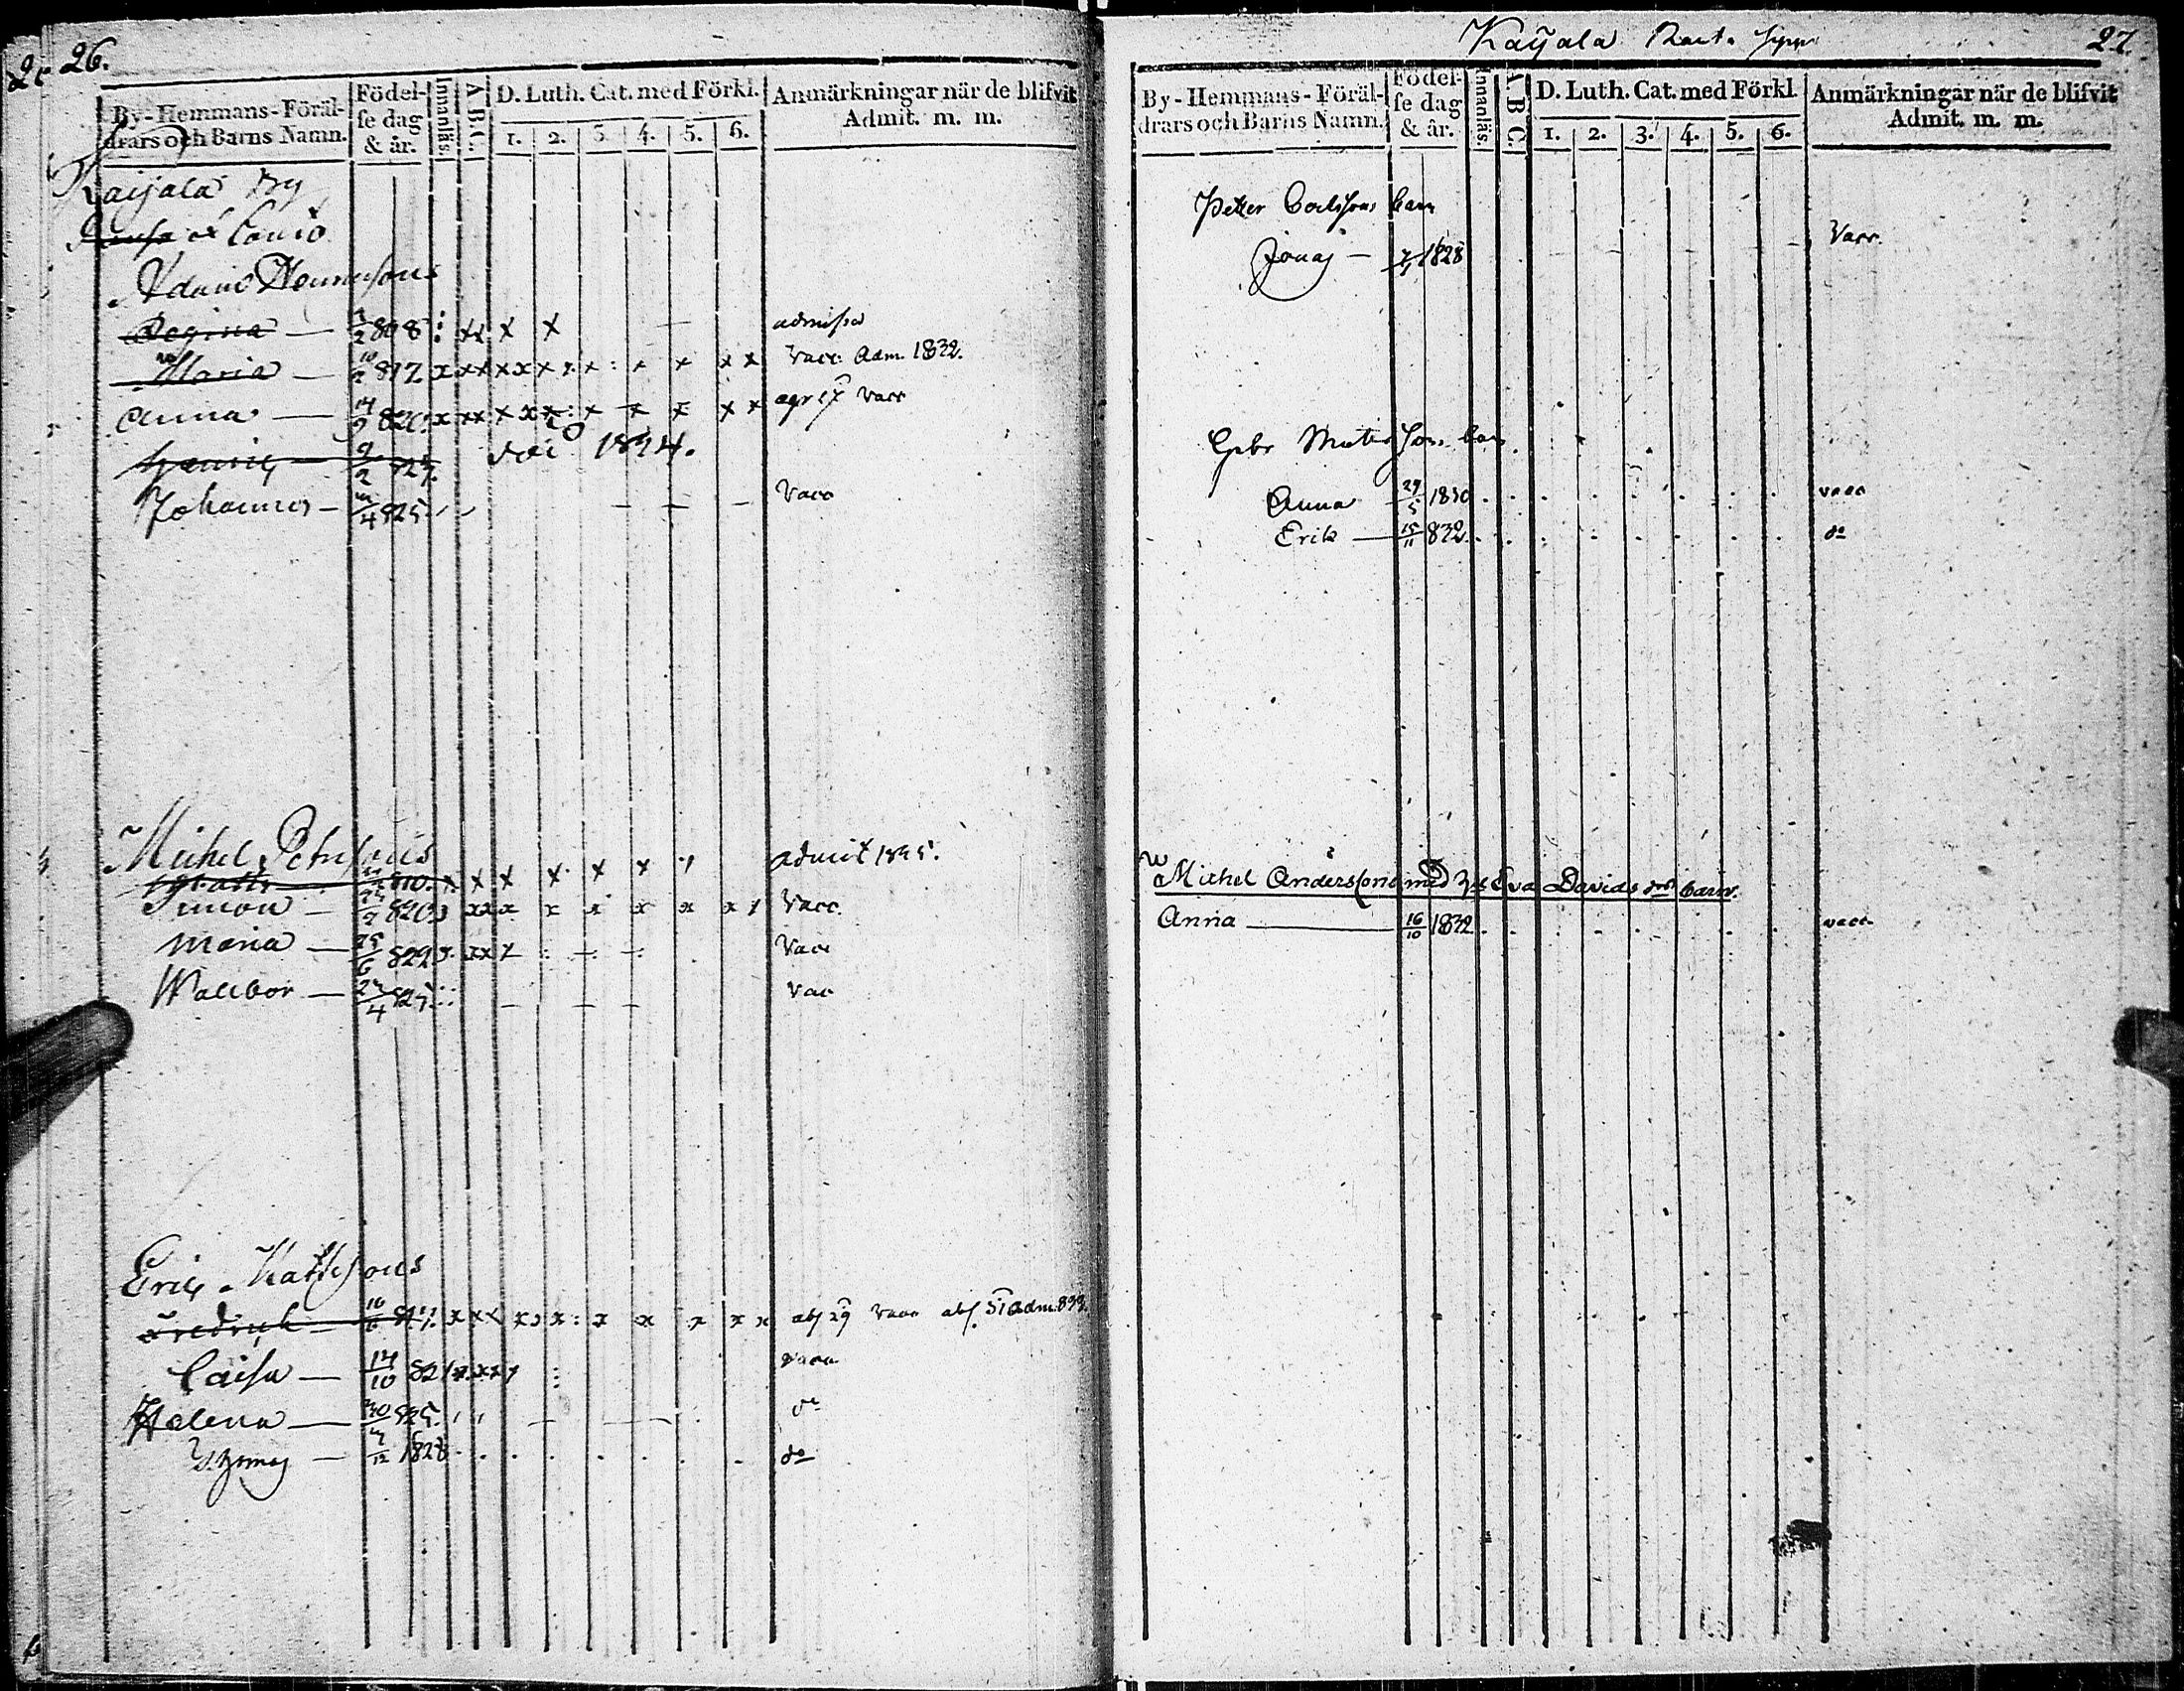 26.
By-Hemmans-Föräl-
drars och Barns Namn.
Födel-
se dag
& år.
Innanläs.
A.B.C.
D. Luth. Cat. med Förkl.
1. 2. 3. 4. 5. 6.
Anmärkningar när de blifvit
Admit. m. m.
Kaijala By
Adam
Regina — 808 x x admissa
Maria — 10/2 817. x xx xx x x x x x x Vacc. Adm. 1832.
Anna — 14/9 820. x xx x x x x x x x vacc
9/2 1834.
Johannes — /4 825. Vacc
Michel Petrssons
810. x x x x x x admit 1825.
Simon — 820 xx x x x x x x Vacc.
Maria — 25/6 822 xx Vacc
Walbor — /4 825 vac
Eric Mattssons
Fredrich — 16/6 x xx x x x x x x abs 29 vacc abs. 31 adm. 833.
Caisa — 14/10 821 xx vacc
Helena — 30/ 825.
/12 1828 do
Kaijala
27.
By-Hemmans-Föräl-
drars och Barns Namn.
Födel-
se dag
& år.
Innanläs.
A.B.C.
D. Luth. Cat. med Förkl.
1. 2. 3. 4. 5. 6.
Anmärkningar när de blifvit
Admit. m. m.
Petter Carlssons barn
Jonas — 1828 Vacc.
Gabr Matssons barn
Anna 29/5 1830 vacc
Erik — 15/11 832. do
Michel Anderssons med Eva Davids dr barn.
Anna — 16/10 1832 vacc.